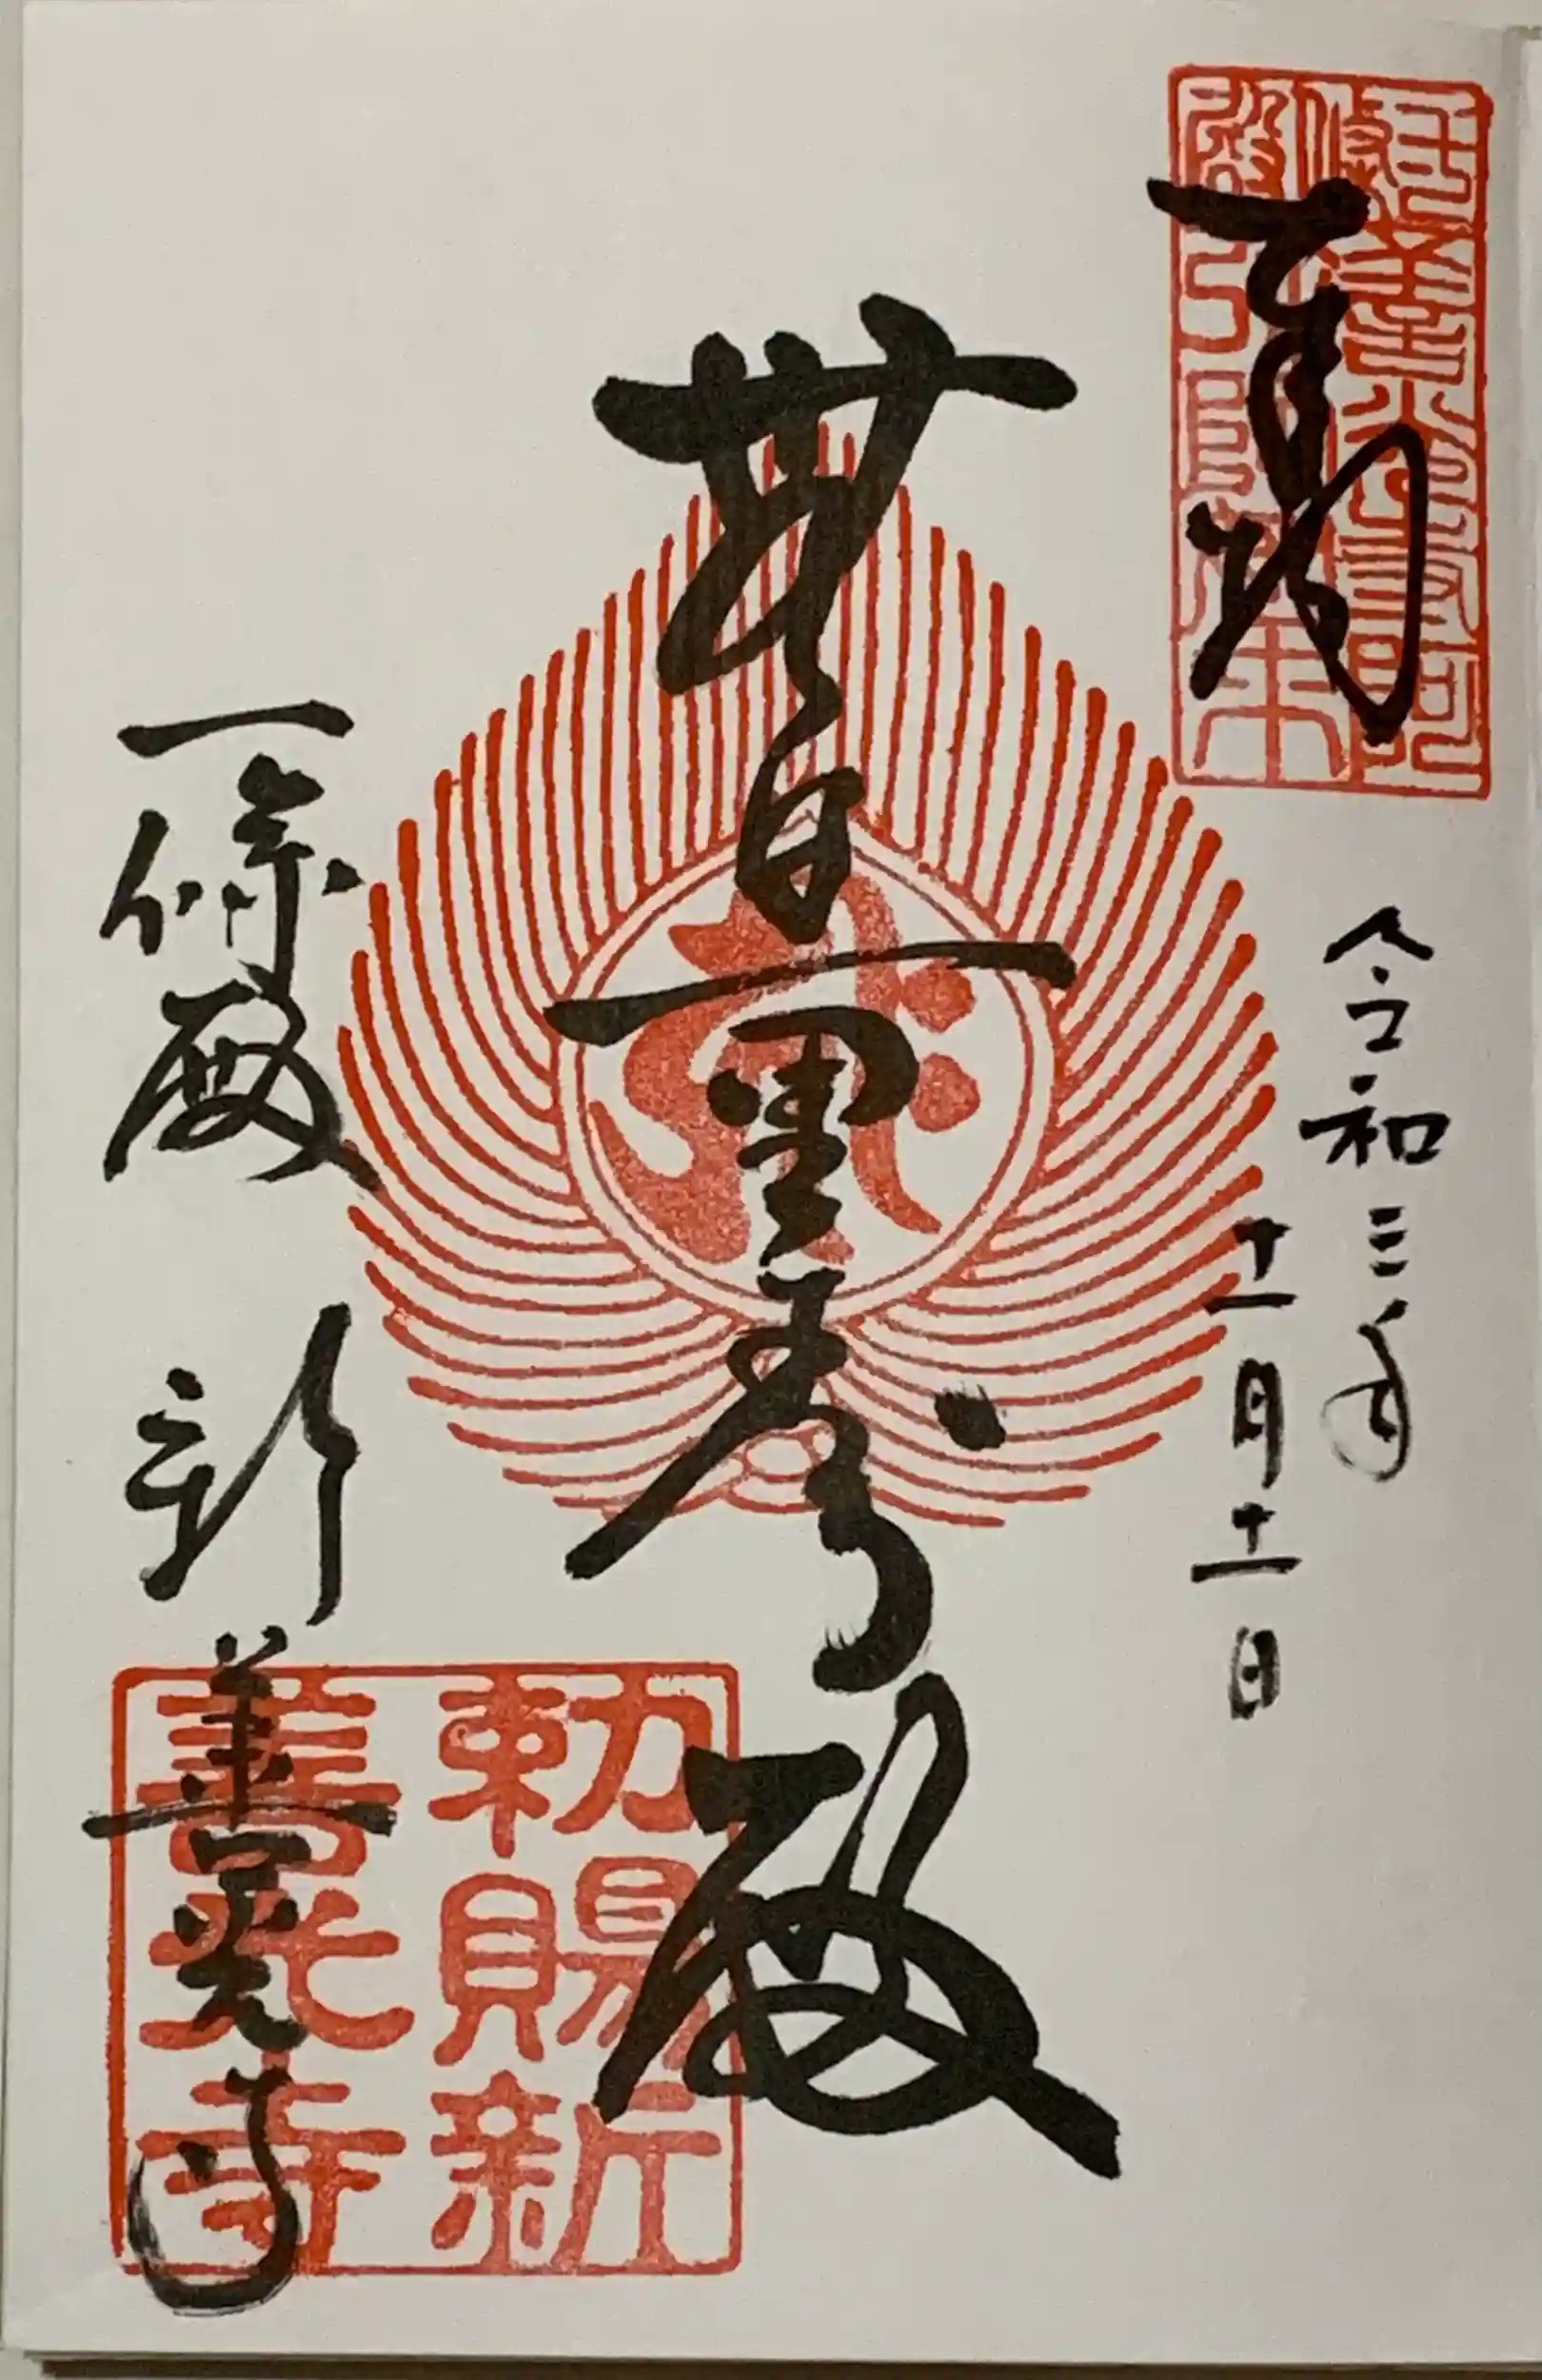 奉拝
令和三年
十一月十一日
無量寿殿
一條殿 新善光寺
勅賜新
善光寺